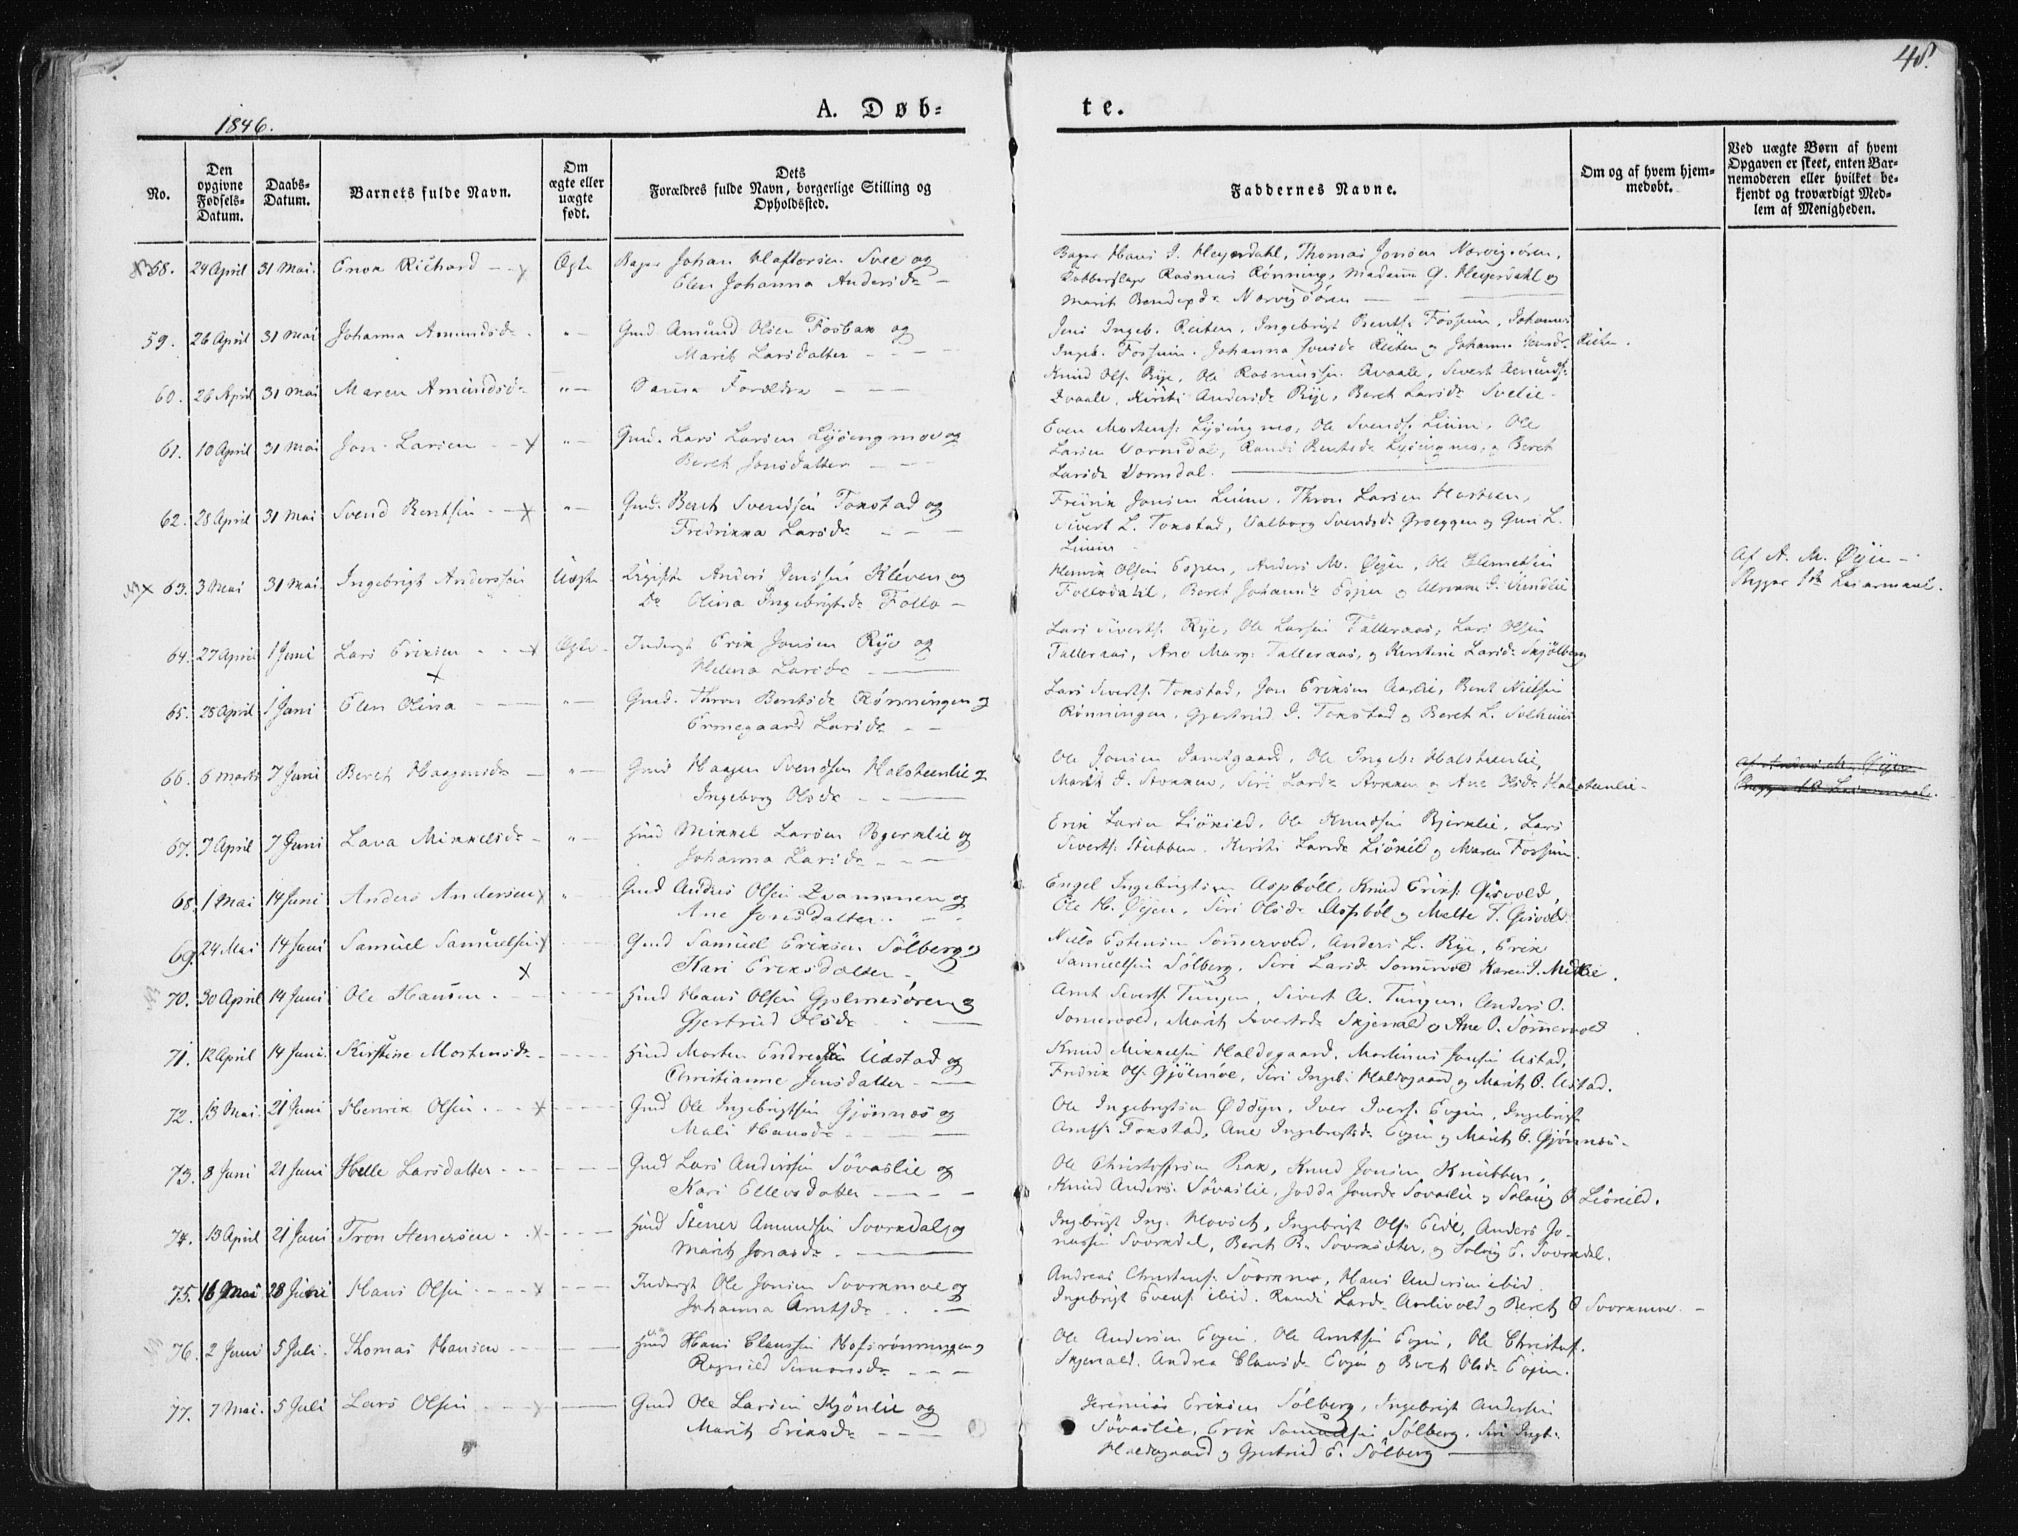 48.
1846.
A. Døb-
te.
No.
Den opgivne Fødsels-Datum.
Daabs-Datum.
Barnets fulde Navn.
Om ægte eller uægte født.
Dets Forældres fulde Navn, borgerlige Stilling og Opholdssted.
Faddernes Navne.
Om og af hvem hjem-medøbt.
Ved uægte Børn af hvem Opgaven er skeet, enten Bar-nemoderen eller hvilket be-kjendt og troværdigt Med-lem af Menigheden.
58. 24 April 31 Mai. Enok Richard Ægte Johan Haftorsen Svee og
Elen Johanna Andersdr
Bager Hans J. Heyerdahl, Thomas Jonsen Norvigsören,
Kobberslager Rasmus Rønning, Madame G. Heyerdahl og
Marit Norvigsören
59. 26 April 31 Mai Johanna Amundsdr Gmd Amund Olsen Fosbak og
Marit Larsdatter
Jens Ingeb. Reiten, Ingebrigt Bents: Fossum, Johannes
Ingeb. Fossum, Johanna Jensdr Reiten og Johanna Reiten.
60. 26 April 31 Mai Maren Amundsdr Samme Forældre
Knud Ols. Rye, Ole Rasmussen Qvaale, Sivert Amunds:
Qvaale, Kirsti Andersdr Rye, Beret Larsdr Svelie
61. 10 April 31 Mai Jon Larsen Gmd. Lars Larsen Lysengmov og
Beret Jonsdatter
Even Mortens: Lysengmo, Ole Svends: Liim, Ole
Larsen Vornsdal, Randi Bentsdr Lysengmo, og Beret
Larsdr Vornsdal.
62. 28 April 31 Mai Svend Bentsen Gmd. Bent Svendsen Tokstad og
Fredrikka Larsdr
Fredrik Jonsen Liim, Thron Larsen Hosteen,
Sivert L. Tokstad, Valborg Svendsdr Groeggen og Guru L.
Liim
63. 3 Mai 31 Mai. Ingebrigt Anderssen Uægte Anders Jensen Kleven og
Do Olina Ingebrigtsdr Follo
Henrik Olsen Espen, Anders M. Øyen, Ole Clemetsen
Follodahl, Beret Johannsdr Espen og
Af A. M. Øyen
Begges 1ste Leiermaal.
64. 27 April 1 Juni Lars Eriksen Ægte Inderst Erik Jonsen Rye og
Helena Larsdr
Lars Siverts. Rye, Ole Larsen Talleraas, Lars Olsen
Talleraas, Ane Marg: Talleraas, og Kirstine Larsdr Skjølberg
65. 28 April 1 Juni Elen Olina Gmd. Thron Bentsen Rønningen og
Ermegaard Larsdr
Lars Siverts. Tokstad, Jon Eriksen Aarlie, Bent Nielsen
Rønningen, Gjertrud J. Tokstad og Beret L. Solheim
66. 6 Marts 7 Juni Beret Haagensdr Gmd Haagen Svendsen Halsteenlie og
Ingeborg Olsdr
Ole Jonsen Ole Ingeb: Halsteenlie,
Marit J. Stokken, Siri Larsdr Stokken og Ane Olsdr Halsteenlie
67. 7 April 7 Juni Lava Mikkelsdr Hmd Mikkel Larsen Bjerklie og
Johanna Larsdr
Erik Larsen Liøkild, Ole Knudsen Bjerklie, Lars
Siverts: Stubben, Kirsti Larsdr Liøkild og Maren Fossum.
68. 1 Mai 14 Juni Anders Andersen Gmd Anders Olsen Qvammen og
Ane Jonsdatter
Engel Ingebrigtsen Aspböll, Knud Eriks: Gisvold,
Ole H. Øyen, Siri Olsdr Aspböl og Malte F. Gisvold
69. 24 Mai 14 Juni Samuel Samuelsen Gmd Samuel Eriksen Sölberg og
Kari Eriksdatter
Niels Estensen Sommervold, Anders L. Rye, Erik
Samuelsen Sølberg, Siri Larsdr Sommervold Karen J. Midtlie.
70. 30 April 14 Juni Ole Hansen Hmd Hans Olsen Gjølmesören og
Gjertrud Olsdr
Arnt Siverts. Tungen, Sivert A. Tungen, Anders O.
Somervold, Marit Sivertsdr Skjenald og Ane O. Sommervold
71. 12 April 14 Juni Kirstine Mortensdr Hmd Morten Endressen Udstad og
Christianne Jensdatter
Knud Mikkelsen Haldogaard, Martinus Jonsen Ustad,
Fredrik Ols. Gjölmöe, Siri Ingeb: Haldogaard og Marit O. Ustad.
72. 13 Mai. 21 Juni Henrik Olsen Gmd Ole Ingebrigtsen Gjönnes og
Mali Hansdr
Ole Ingebrigtsen Øddyn, Iver Ivers. Evjen, Ingebrigt
Arnts. Tokstad, Ane Ingebrigtsdr Evjen og Marit O. Gjönnes
73. 8 Juni 21 Juni Helle Larsdatter Gmd Lars Anderssen Sövaslie og
Kari Ellevsdatter
Ole Christophersen Bak, Knud Jonsen Knubben,
Knud Anders: Sövaslie, Jodda Jonsdr Sovaslie og Solvig O Liökild.
74. 13 April 21 Juni Tron Stenersen Hmd Stener Amundsen Svorkdal og
Marit Jonasdr
Ingebrigt Ing. Hovset, Ingebrigt Ols: Eide, Anders Jo-
nassen Svorkdal, Beret B. og Solvig E. Svorkdal.
75. 16 Mai 28 Juni Hans Olsen Inderst Ole Jonsen Svorkmoe og
Johanna Arntsdr
Andreas Christens: Svorkmo, Hans Andersen ibid.
Ingebrigt Evens. ibid. Randi Larsdr Aarlivold og Beret O Svorkmoe.
76. 2 Juni 5 Juli. Thomas Hansen Hmd Hans Clausen Hofsrönningen og
Ragnild Simonsdr
Ole Andersen Evjen, Ole Arntsen Evjen, Ole Christof.
Skjenald, Andrea Clausdr Evjen og Beret Olsdr Evjen.
77. 7 Mai. 5 Juli Lars Olsen Gmd Ole Larsen Kjönlie og
Marit Eriksdr
Jeremias Eriksen Sölberg, Ingebrigt Andersen
Sövaslie, Erik Samuelsen Sölberg, Siri Ingb.
Haldogaard og Gjertrud E. Sölberg